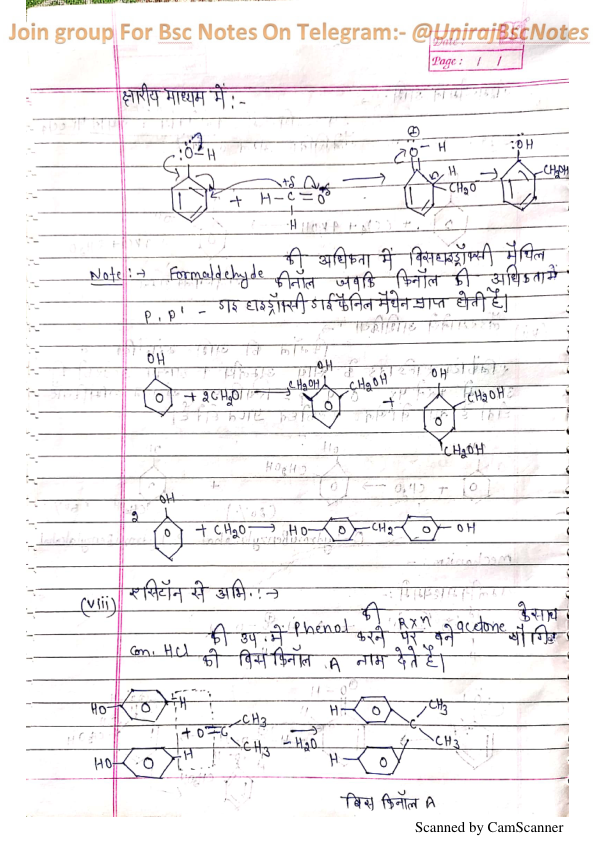 Join group For Bsc Notes On Telegram:- @UnirajBscNotes
Date :
Page : / /
क्षारीय माध्यम में :-
:Ö-H + H-C=O → O-H H CH₂O → :ÖH CH₂OH
+δ
H
की अधिकता में बिसहाइड्रॉक्सी मेथिल
Note :→ Formaldehyde फीनॉल जबकि फिनॉल की अधिकतामें
P, P' - डाइ हाइड्रॉक्सी डाई फेनिल मेथेन प्राप्त होती है।
OH + 2CH₂O → OH CH₂OH CH₂OH + OH CH₂OH CH₂OH
2 OH + CH₂O → HO CH₂ OH
(viii) एसिटॉन से अभि. :→
की उप. में Phenol की Rxn acetone के साथ
Con. HCl करने पर बने यौगिक
को बिस फिनॉल A नाम देते है।
HO H + O=C CH₃ CH₃ -H₂O → H C CH₃ CH₃
HO H H
बिस फिनॉल A
Scanned by CamScanner